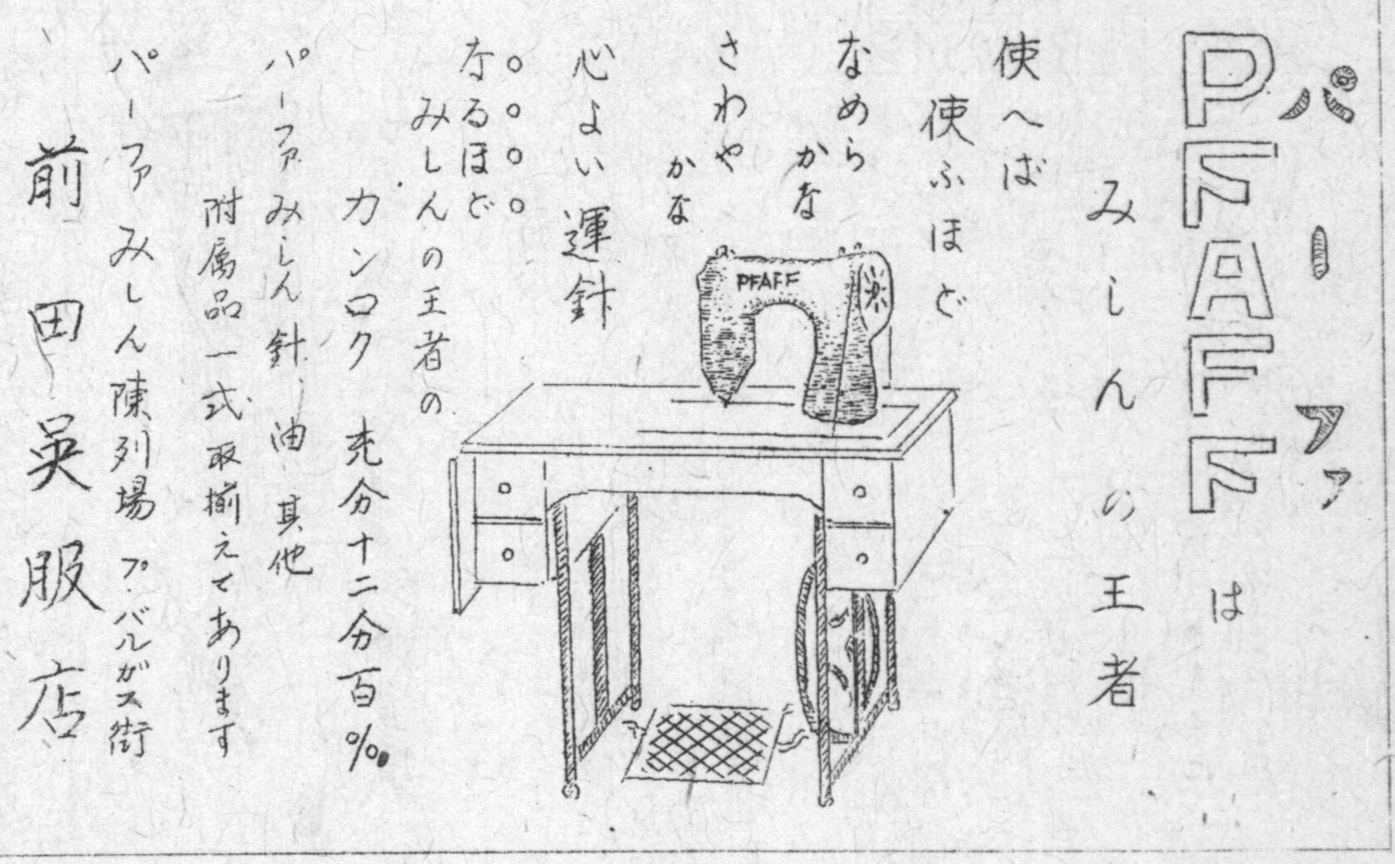 パーファ
PFAFF は
みしんの王者
使へば
使ふほど
なめら
かな
さわや
かな
心よい運針
PFAFF
なるほど
みしんの王者の
カンロク 充分十二分百%
パーファみしん針 油 其他
附属品一式取揃えてあります
パーファみしん陳列場 プ.バルガス街
前田英服店